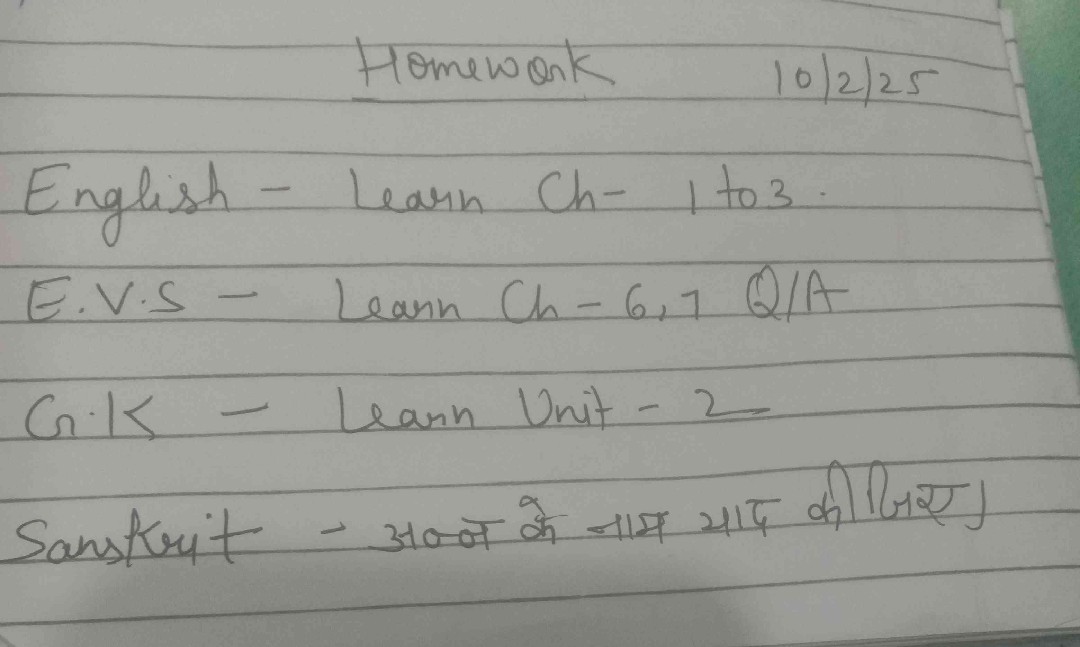 Homework 10/2/25
English - Learn Ch- 1 to 3.
E.V.S - Learn Ch - 6,7 Q/A
G.K - Learn Unit - 2
Sanskrit - अन्न के नाम याद कीजिए।